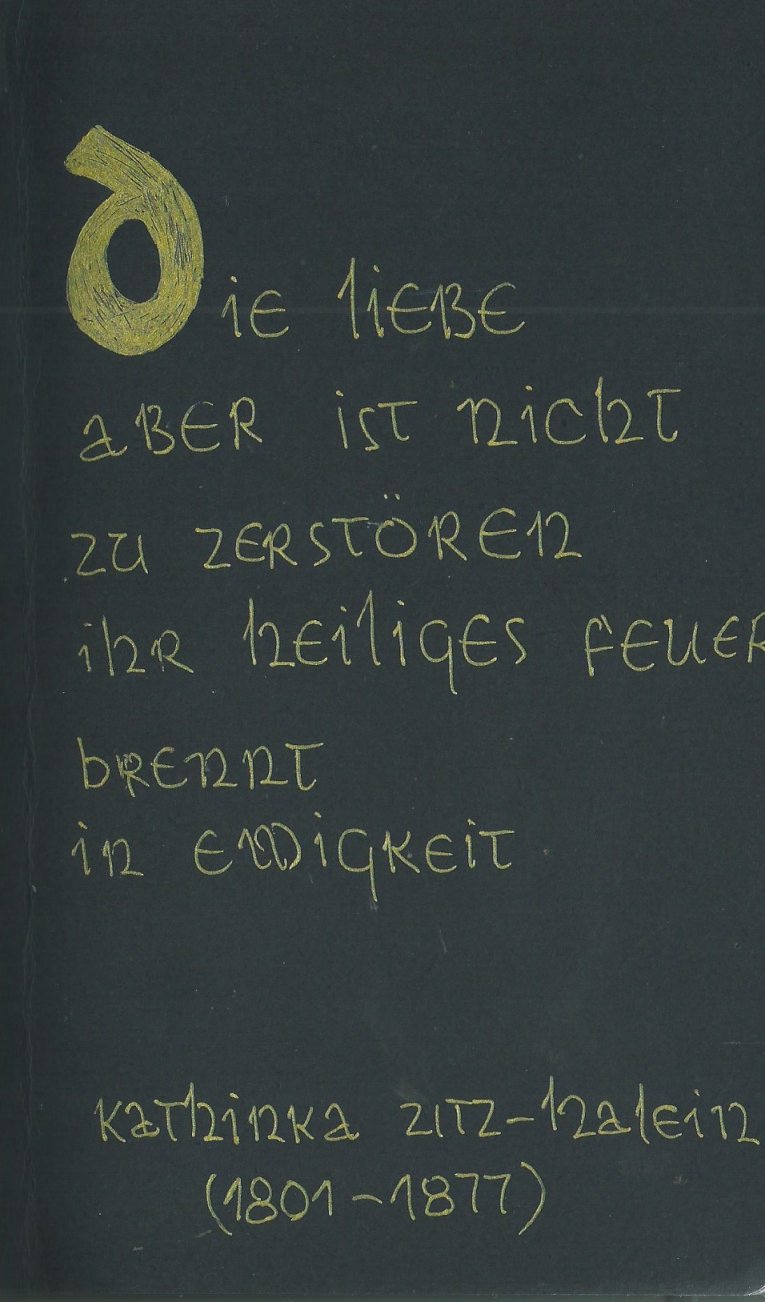 Die liebe
aber ist nicht
zu zerstören
ihr heiliges feuer
brennt
in ewigkeit
kathinka zitz-halein
(1801-1877)